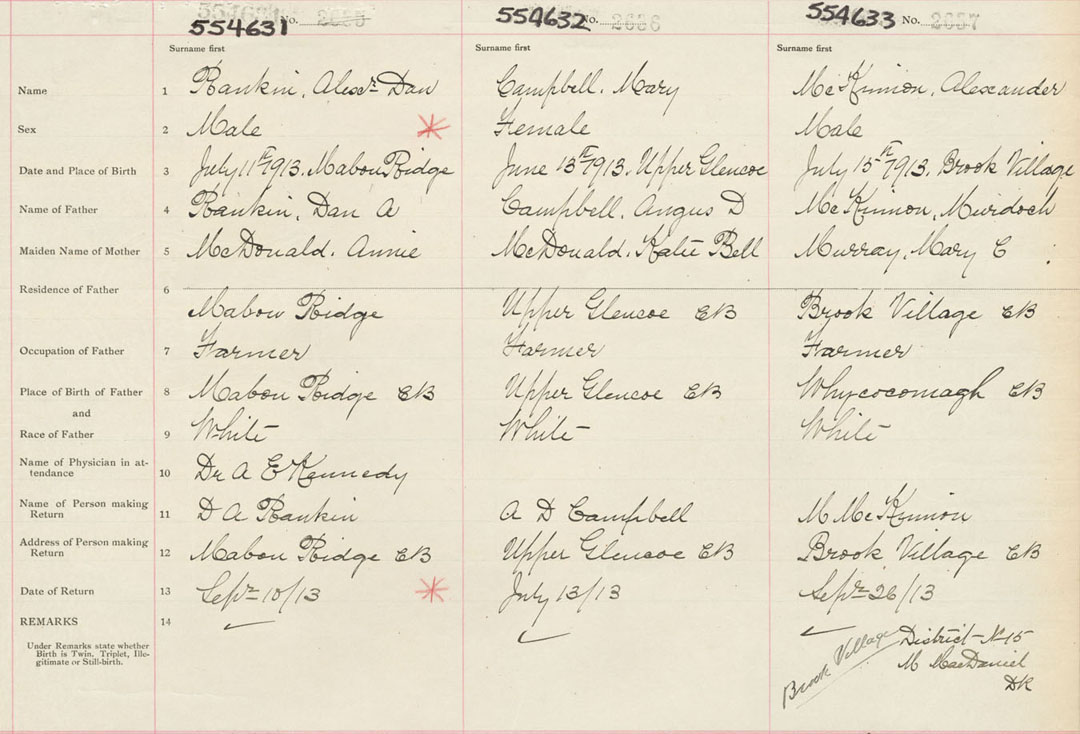 554631 No. 2635 554632 No. 2636 554633 No. 2637
Surname first Surname first Surname first
Name 1 Rankin, Alexr Dan Campbell. Mary McKinnon, Alexander
Sex 2 Male Female Male
Date and Place of Birth 3 July 11th 1913. Mabou Ridge June 13th 1913. Upper Glencoe July 15th 1913. Brook Village
Name of Father 4 Rankin, Dan A Campbell. Angus D McKinnon, Murdoch
Maiden Name of Mother 5 McDonald. Annie McDonald. Katie Bell Murray, Mary C
Residence of Father 6
Mabou Ridge Upper Glencoe CB Brook Village CB
Occupation of Father 7 Farmer Farmer Farmer
Place of Birth of Father 8 Mabou Ridge CB Upper Glencoe CB Whycocomagh CB
and
Race of Father 9 White White White
Name of Physician in at-
tendance 10 Dr A E Kennedy
Name of Person making
Return 11 D A Rankin A D Campbell M McKinnon
Address of Person making
Return 12 Mabou Ridge CB Upper Glencoe CB Brook Village CB
Date of Return 13 Sepr 10/13 July 13/13 Sepr 26/13
REMARKS 14
Under Remarks state whether
Birth is Twin. Triplet, Ille-
gitimate or Still-birth.
Brook Village
District No 15
M MacDaniel
DR